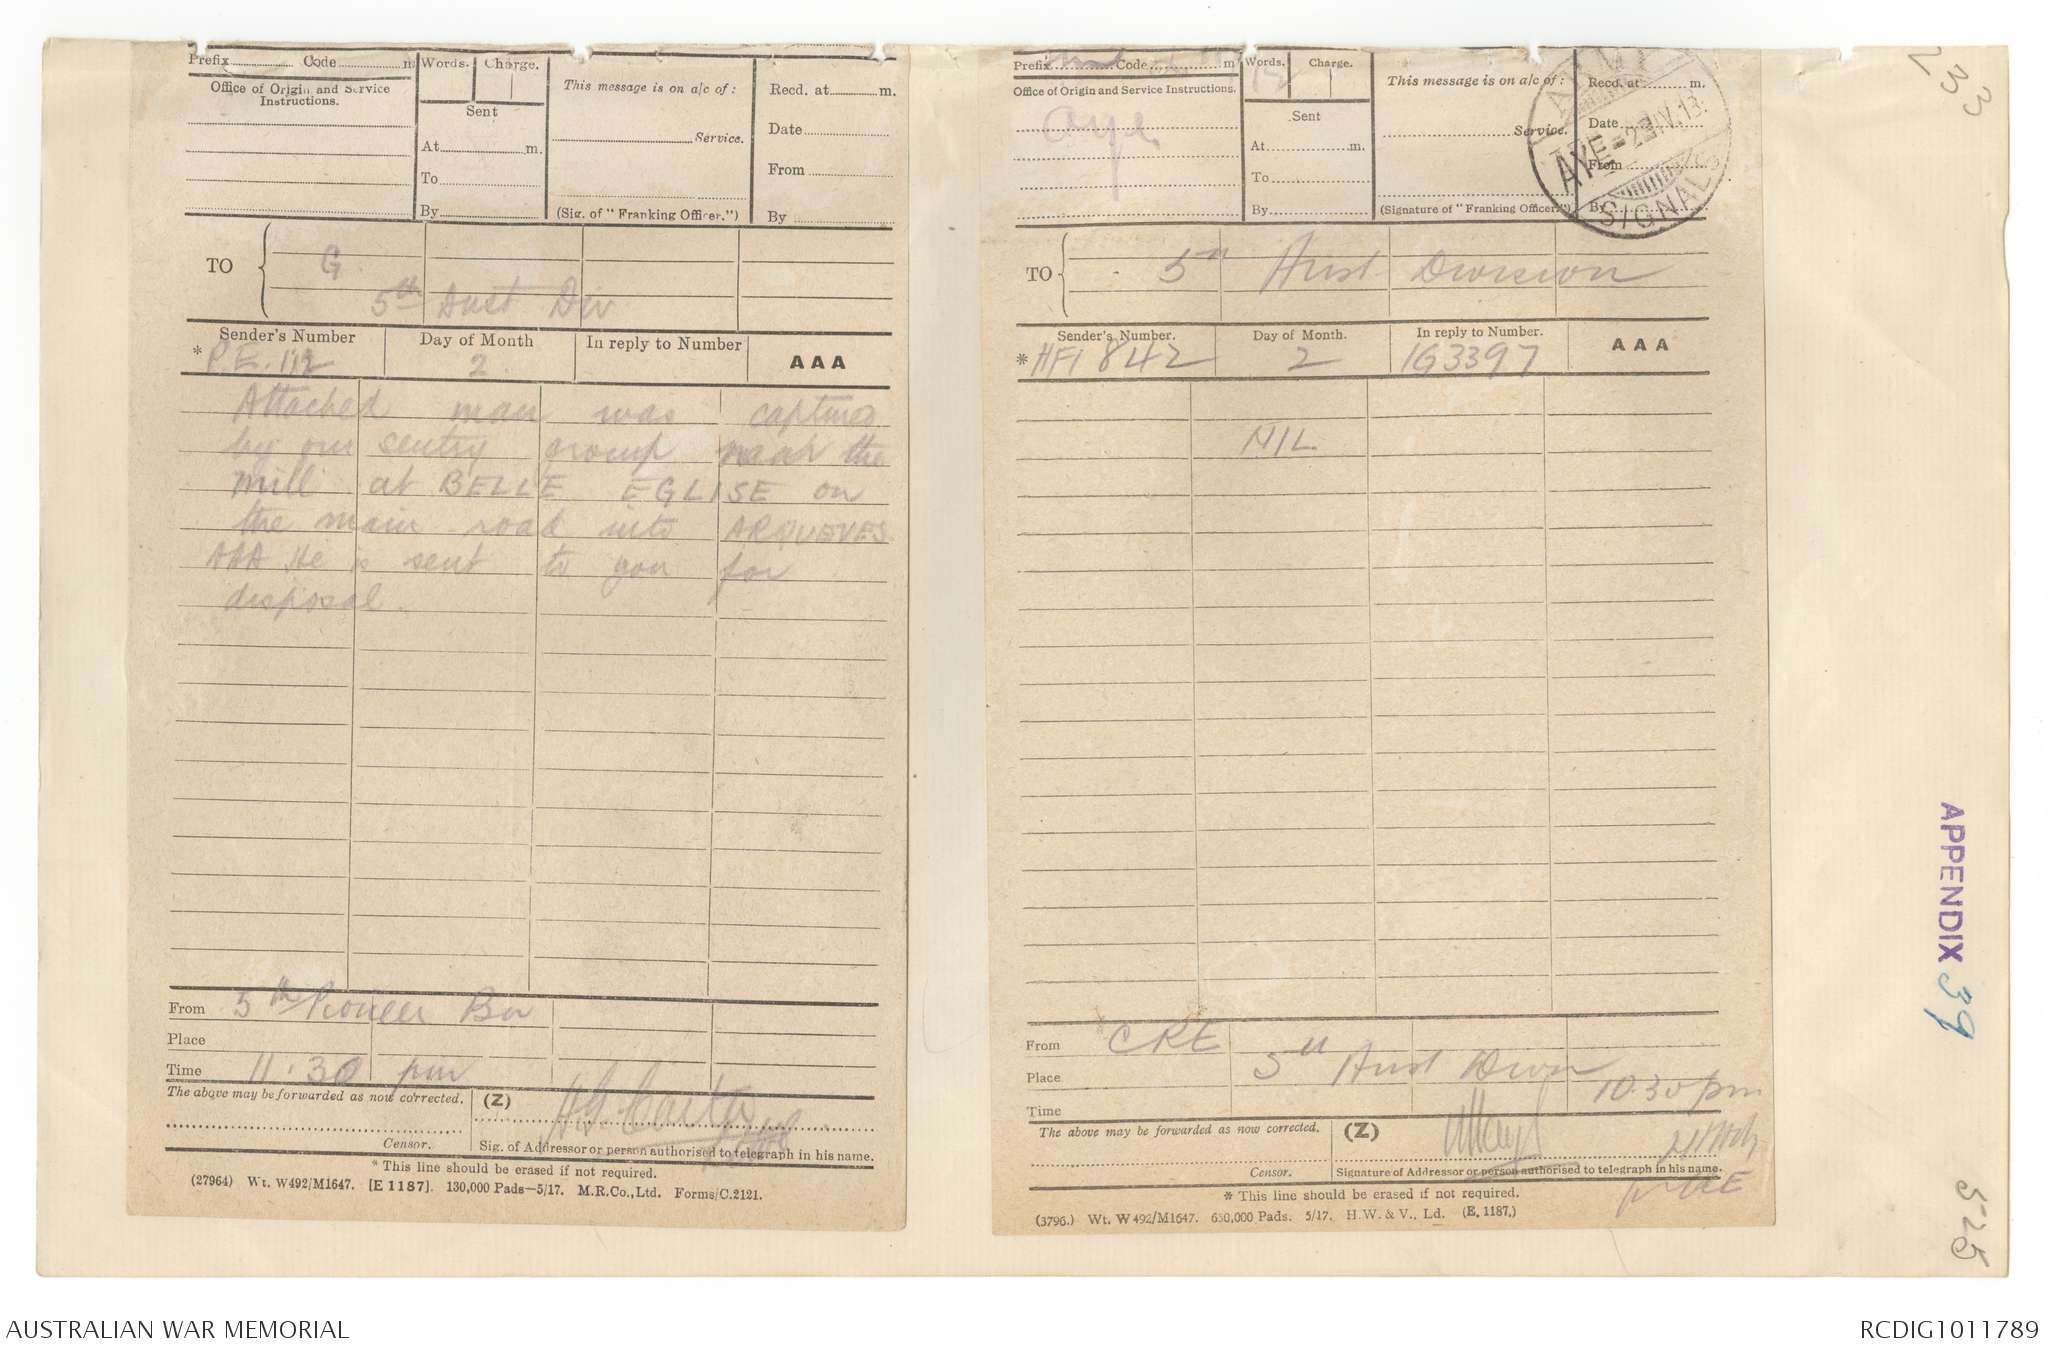 Prefix Code m
Words. Charge.
This message is on a/c of :
Recd. at m.
Office of Origin and Service
Instructions.
Sent
Service.
Date
At m.
From
To
By
(Sig. of "Franking Officer.")
By
TO
G
5th Aust Div
Sender's Number
Day of Month
In reply to Number
AAA
* P.E. 112
2
Attached man was captured
by our sentry group near the
mill at BELLE EGLISE on
the main road into ARQUEVES
AAA He is sent to you for
disposal.
From 5th Pioneer Bn
Place
Time 11.30 pm
The above may be forwarded as now corrected.
(Z)
Censor.
Sig. of Addressor or person authorised to telegraph in his name.
* This line should be erased if not required.
(27964) Wt. W492/M1647. [E 1187]. 130,000 Pads—5/17. M.R.Co., Ltd. Forms/C.2121.
Prefix Code m
Words. Charge.
This message is on a/c of :
Recd. at m.
Office of Origin and Service Instructions.
Aye
Sent
Service.
Date
At m.
From
To
By
(Signature of "Franking Officer.")
By
ARMY
AYE
SIGNALS
TO
5th Aust Division
Sender's Number.
Day of Month.
In reply to Number.
AAA
* HF1 842
2
1G3397
NIL
From CRE
Place 5th Aust Divn
Time 10.30 pm
The above may be forwarded as now corrected.
(Z)
Censor.
Signature of Addressor or person authorised to telegraph in his name.
* This line should be erased if not required.
(3796.) Wt. W 492/M1647. 650,000 Pads. 5/17. H.W. & V., Ld. (E. 1187.)
APPENDIX 39
525
AUSTRALIAN WAR MEMORIAL
RCDIG1011789